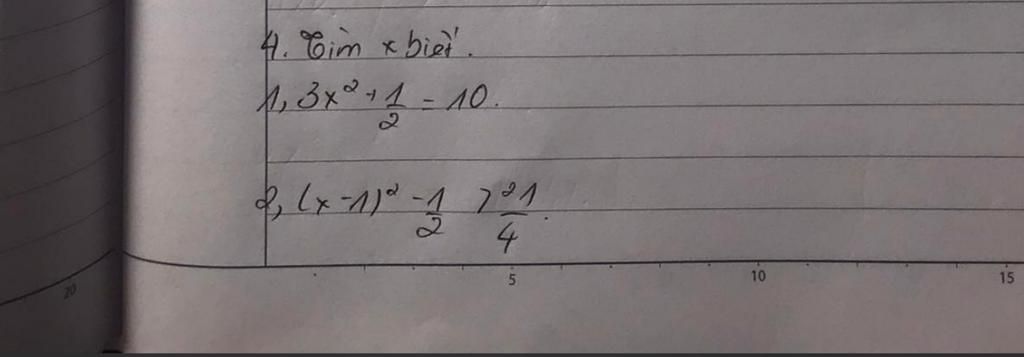 4. Tìm x biết.
1, 3x² + 1/2 = 10.
2, (x - 1)² - 1/2 > 21/4.
20 5 10 15